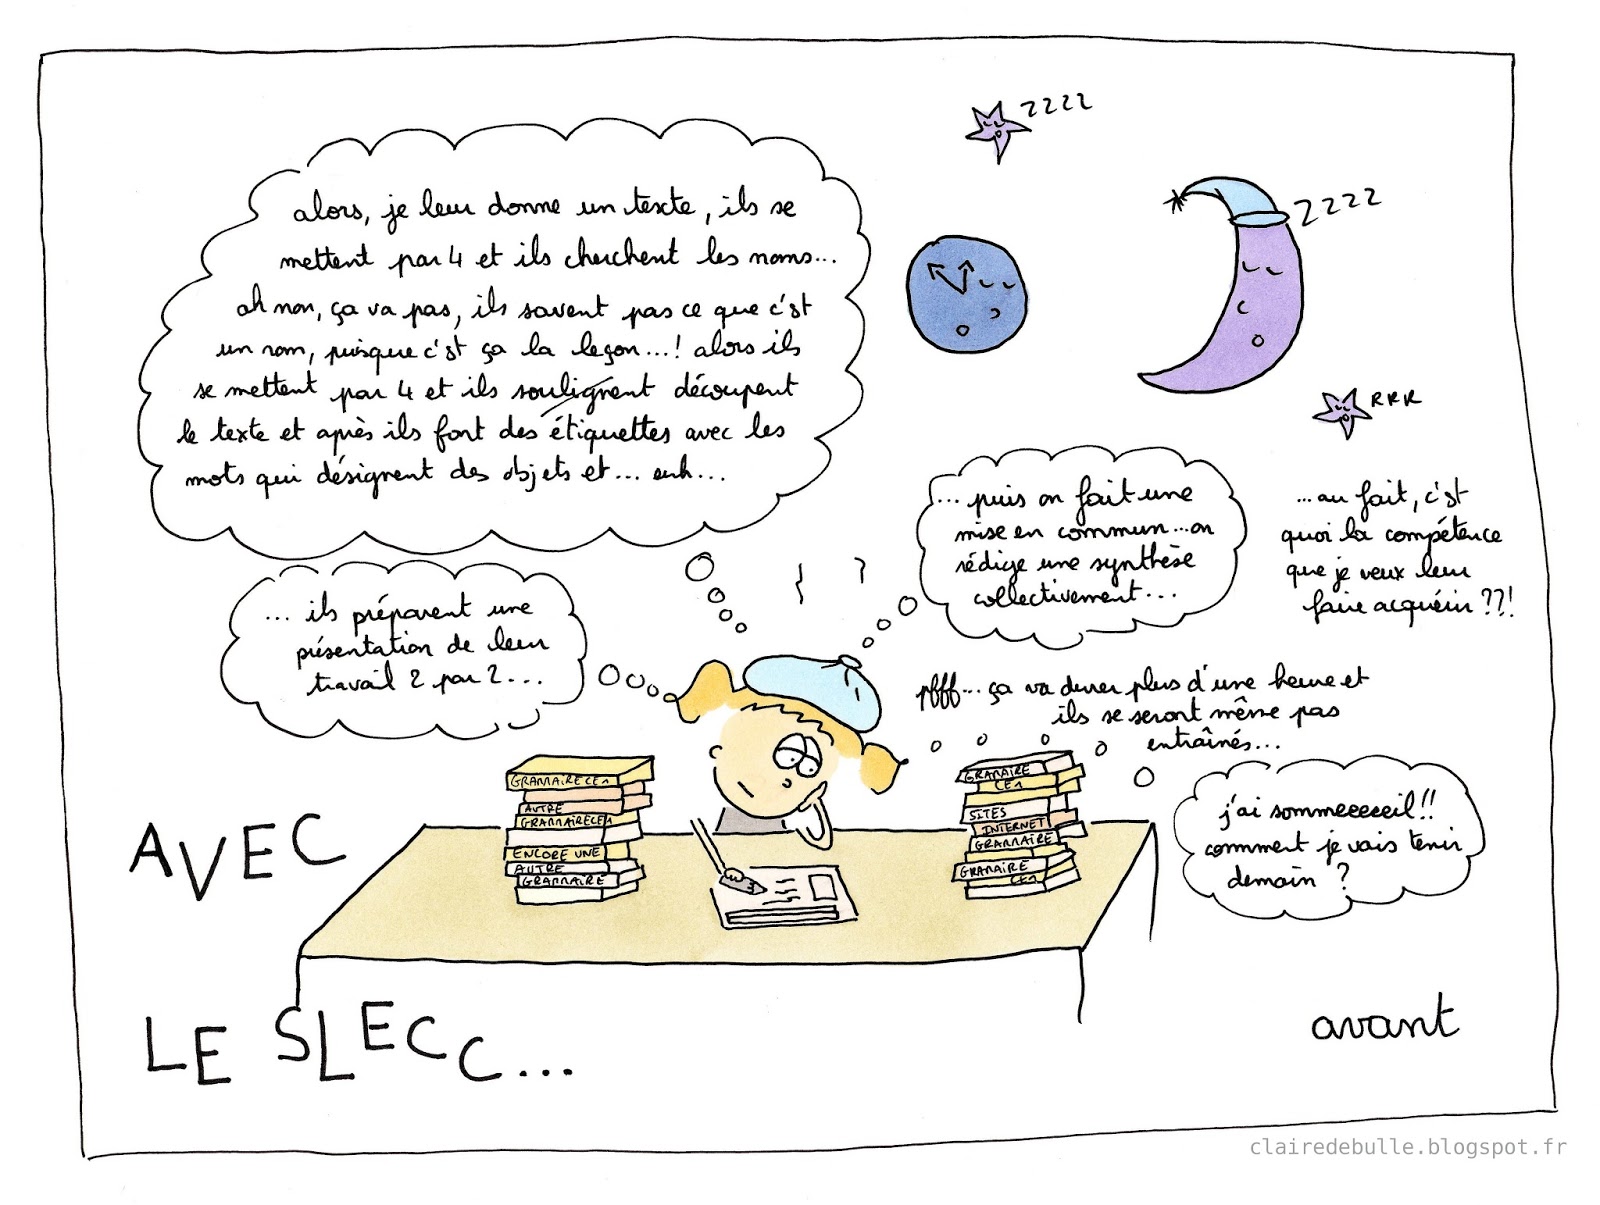 zzzz
zzzz
RRR
alors, je leur donne un texte, ils se
mettent par 4 et ils cherchent les noms...
ah non, ça va pas, ils savent pas ce que c'st
un nom, puisque c'st ça la leçon...! alors ils
se mettent par 4 et ils soulignent découpent
le texte et après ils font des étiquettes avec les
mots qui désignent des objets et... euh...
... ils préparent une
présentation de leur
travail 2 par 2...
... puis on fait une
mise en commun... on
rédige une synthèse
collectivement...
...au fait, c'st
quoi la compétence
que je veux leur
faire acquérir ??!
pfff... ça va durer plus d'une heure et
ils se seront même pas
entraînés...
j'ai sommeeeeeil!!
comment je vais tenir
demain ?
GRAMMAIRE CE1
AUTRE
GRAMMAIRE CE1
ENCORE UNE
AUTRE
GRAMMAIRE
GRAMAIRE
CE1
SITES
INTERNET
GRAMMAIRE
GRAMMAIRE
CE1
AVEC
LE SLECC...
avant
clairedebulle.blogspot.fr